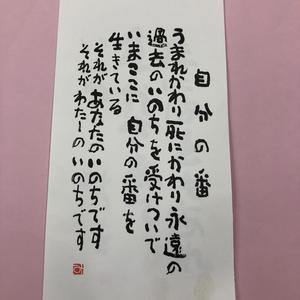 自分の番
うまれかわり死にかわり永遠の
過去のいのちを受けついで
いまここに 自分の番を
生きている
それがあなたのいのちです
それがわたしのいのちです